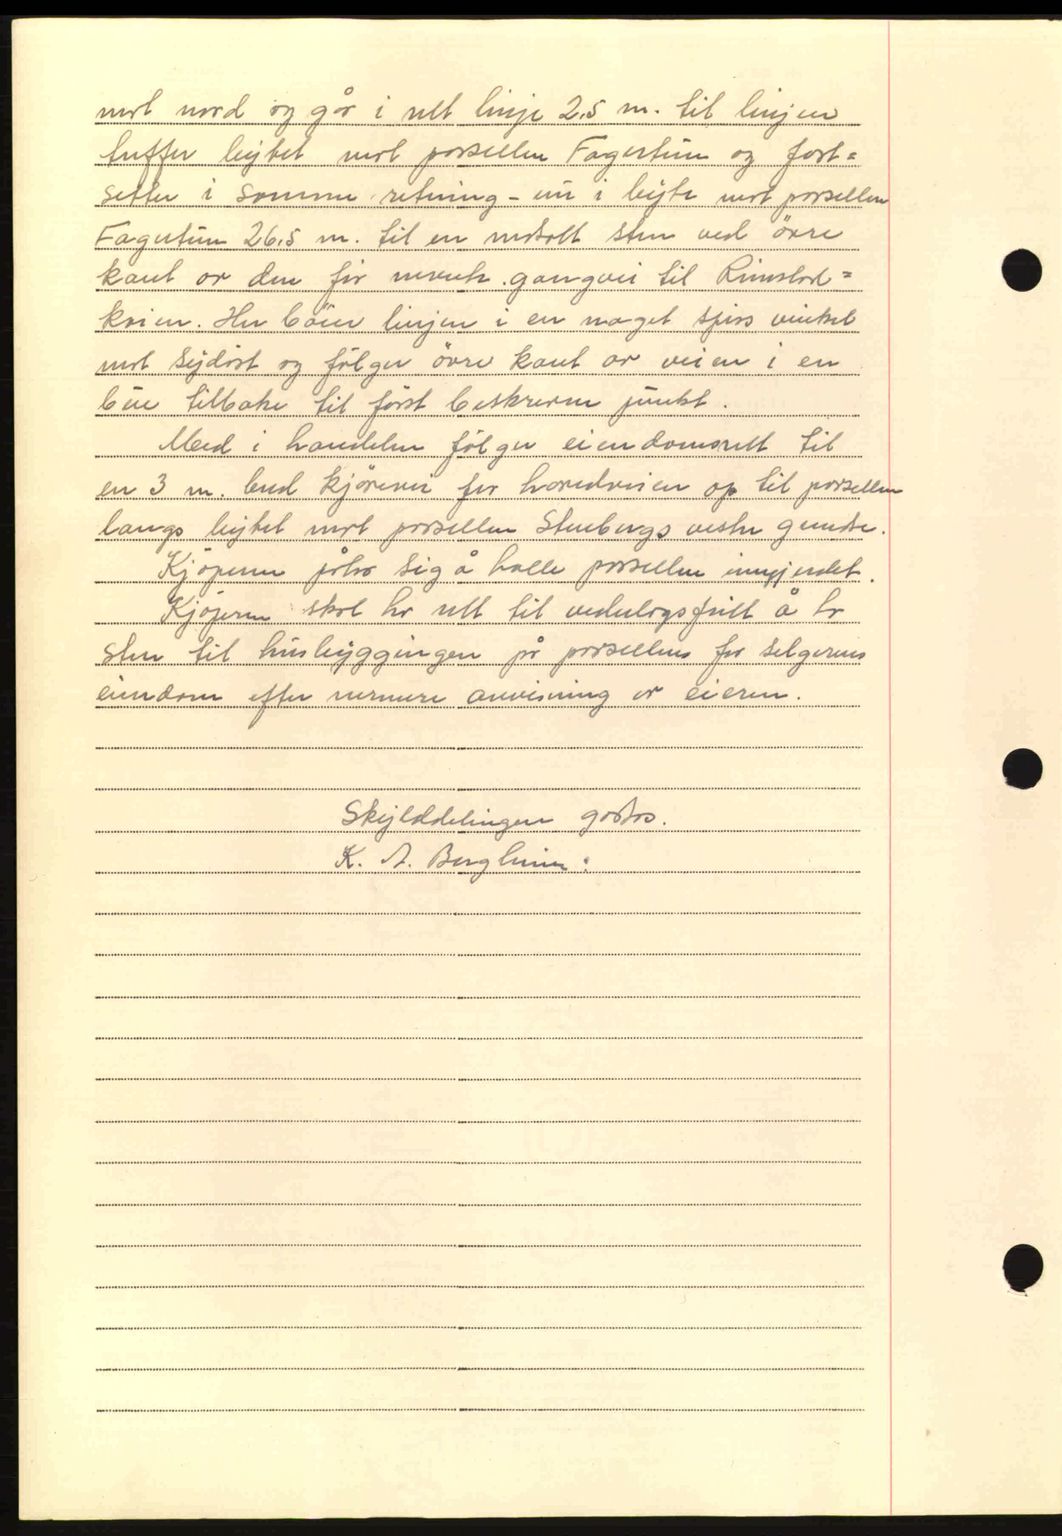 mot nord og går i rett linje 2,5 m. til linjen
treffer bytet mot parsellen Fagertun og fort=
setter i samme retning - nu i byte mot parsellen
Fagertun 26,5 m. til en nedsatt sten ved övre
kant av den för nevnte gangvei til
Her böier linjen i en noget spiss vinkel
mot sydöst og fölger övre kant av veien i en
bue tilbake til först beskrevne punkt.
Med i handelen fölger eiendomsrett til
en 3 m. bred kjörevei fra hovedveien op til parsellen
langs bytet mot parsellen Stenbergs vestre grense.
Kjöperen påtar sig å holde parsellen inngjerdet.
Kjöperen skal ha rett til vederlagsfritt å ta
sten til husbyggingen på parsellen fra selgerens
eiendom efter nærmere anvisning av eieren.
Skylddelingen godtas.
K. A. Berglund